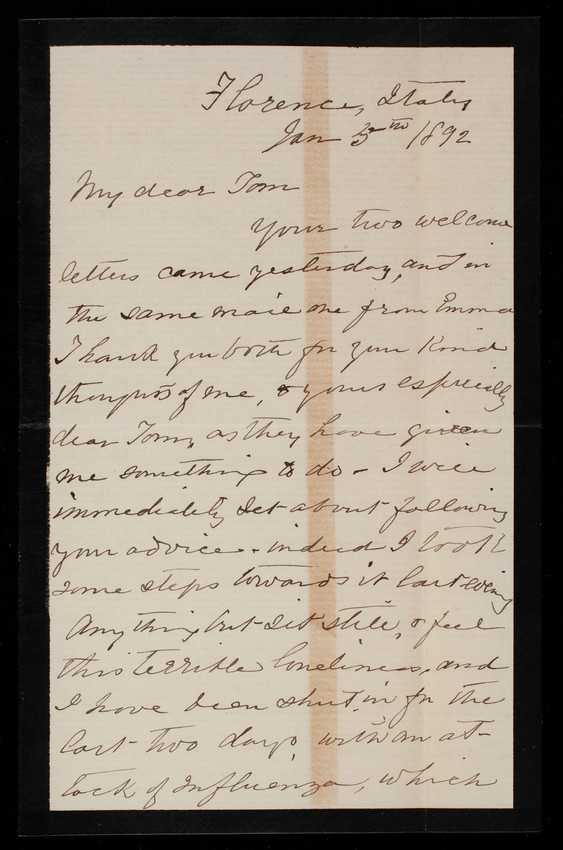 Florence, Italy
Jan 5th 1892
My dear Tom
Your two welcome
letters came yesterday, and in
the same mail one from Emma
I thank you both for your kind
thoughts of me, & yours especially
dear Tom, as they have given
me something to do - I will
immediately set about following
your advice - indeed I took
some steps towards it last evening
Anything but sit still, & feel
this terrible loneliness, and
I have been shut in for the
last two days, with an at-
tack of Influenza, which